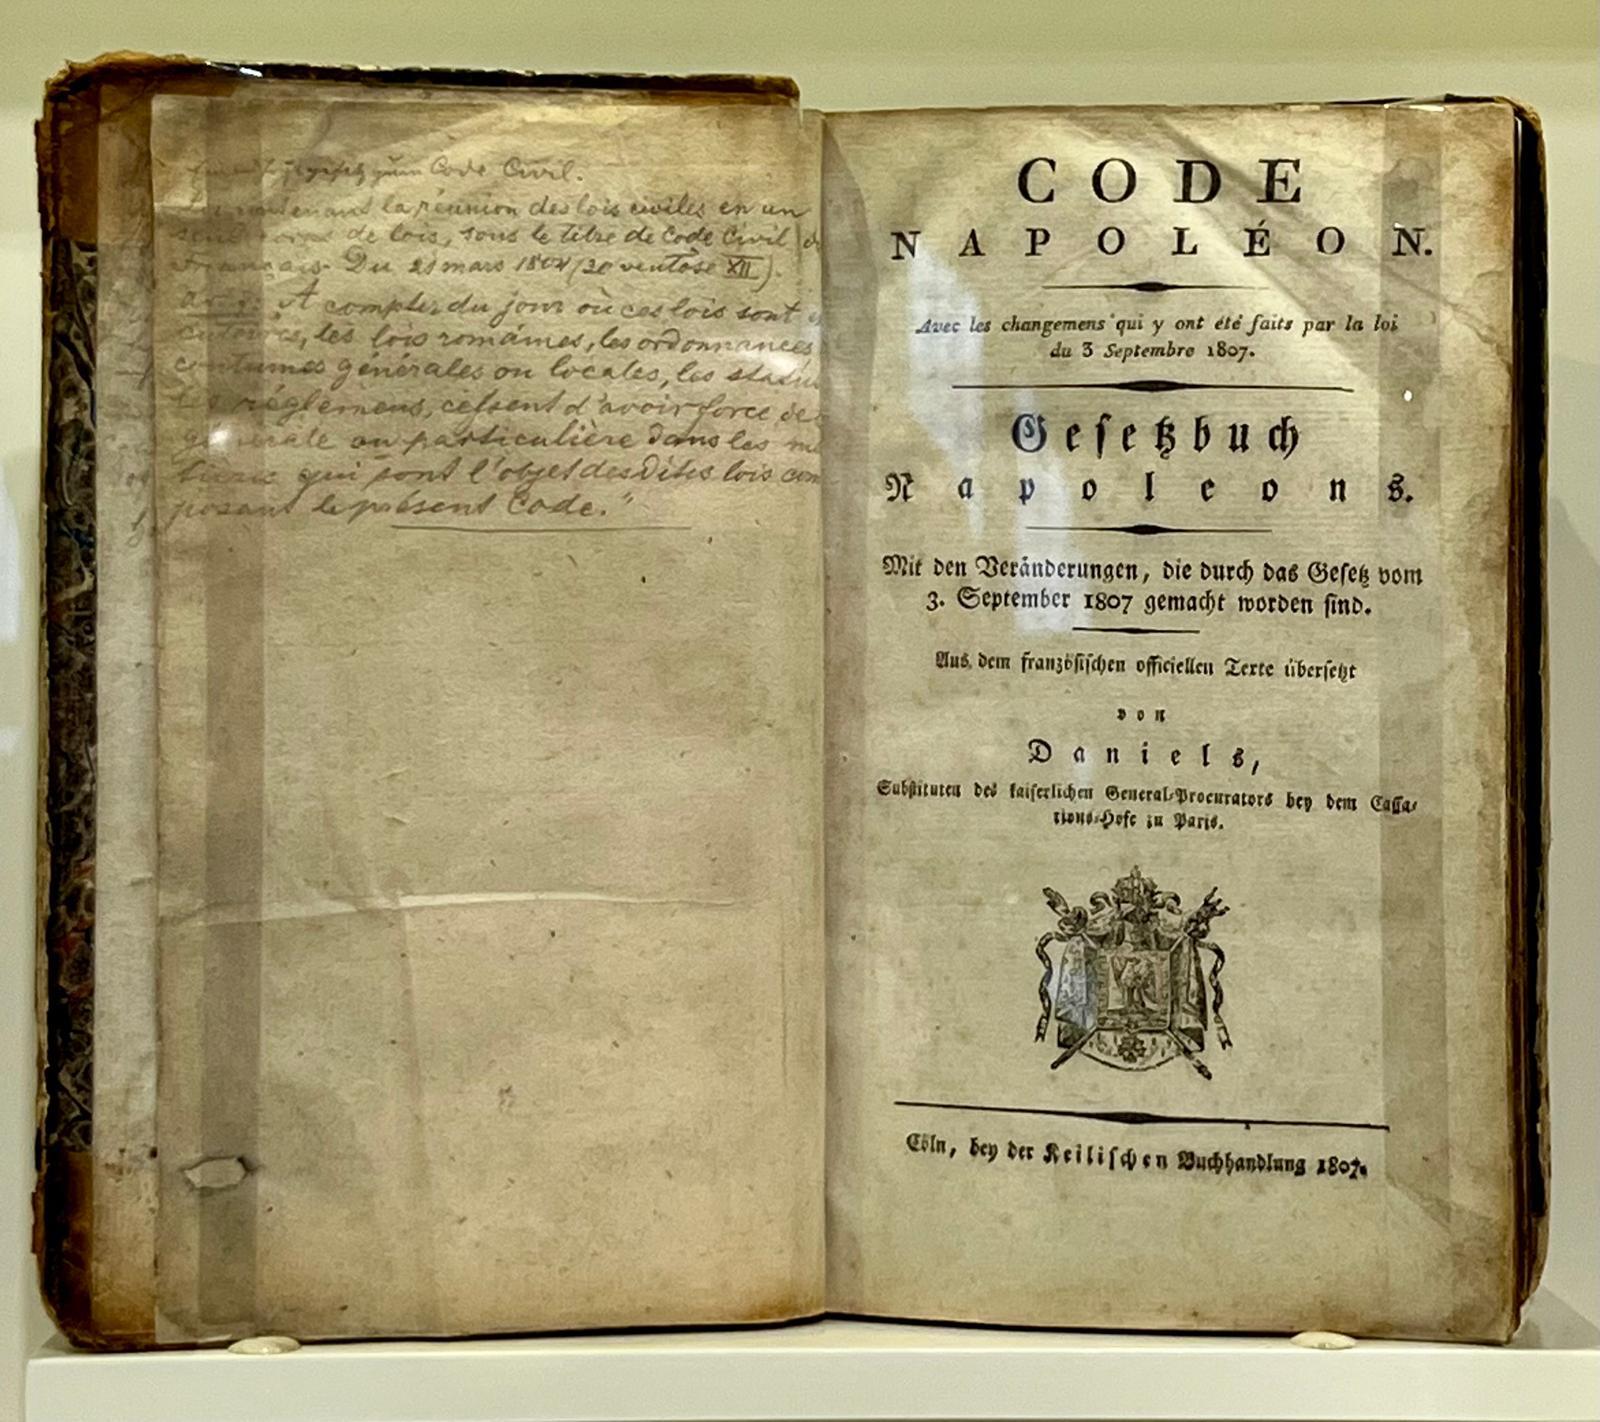 zum Code Civil.
la réunion des lois civiles en un
de lois, sous le titre de Code Civil
Français. Du 21 mars 1804 (30 ventose XII).
A compter du jour où ces lois sont
les lois romaines, les ordonnances,
coutumes générales ou locales, les
réglemens, cessent d'avoir force de
générale ou particulière dans les
qui sont l'objet des dites lois com
posant le présent Code."
CODE
NAPOLÉON.
Avec les changemens qui y ont été faits par la loi
du 3 Septembre 1807.
Gesetzbuch
Napoleons.
Mit den Veränderungen, die durch das Gesetz vom
3. September 1807 gemacht worden sind.
Aus dem französischen officiellen Texte übersetzt
von
Daniels,
Substituten des kaiserlichen General-Procurators bey dem Cassa-
tions-Hofe zu Paris.
Cöln, bey der Keilischen Buchhandlung 1807.